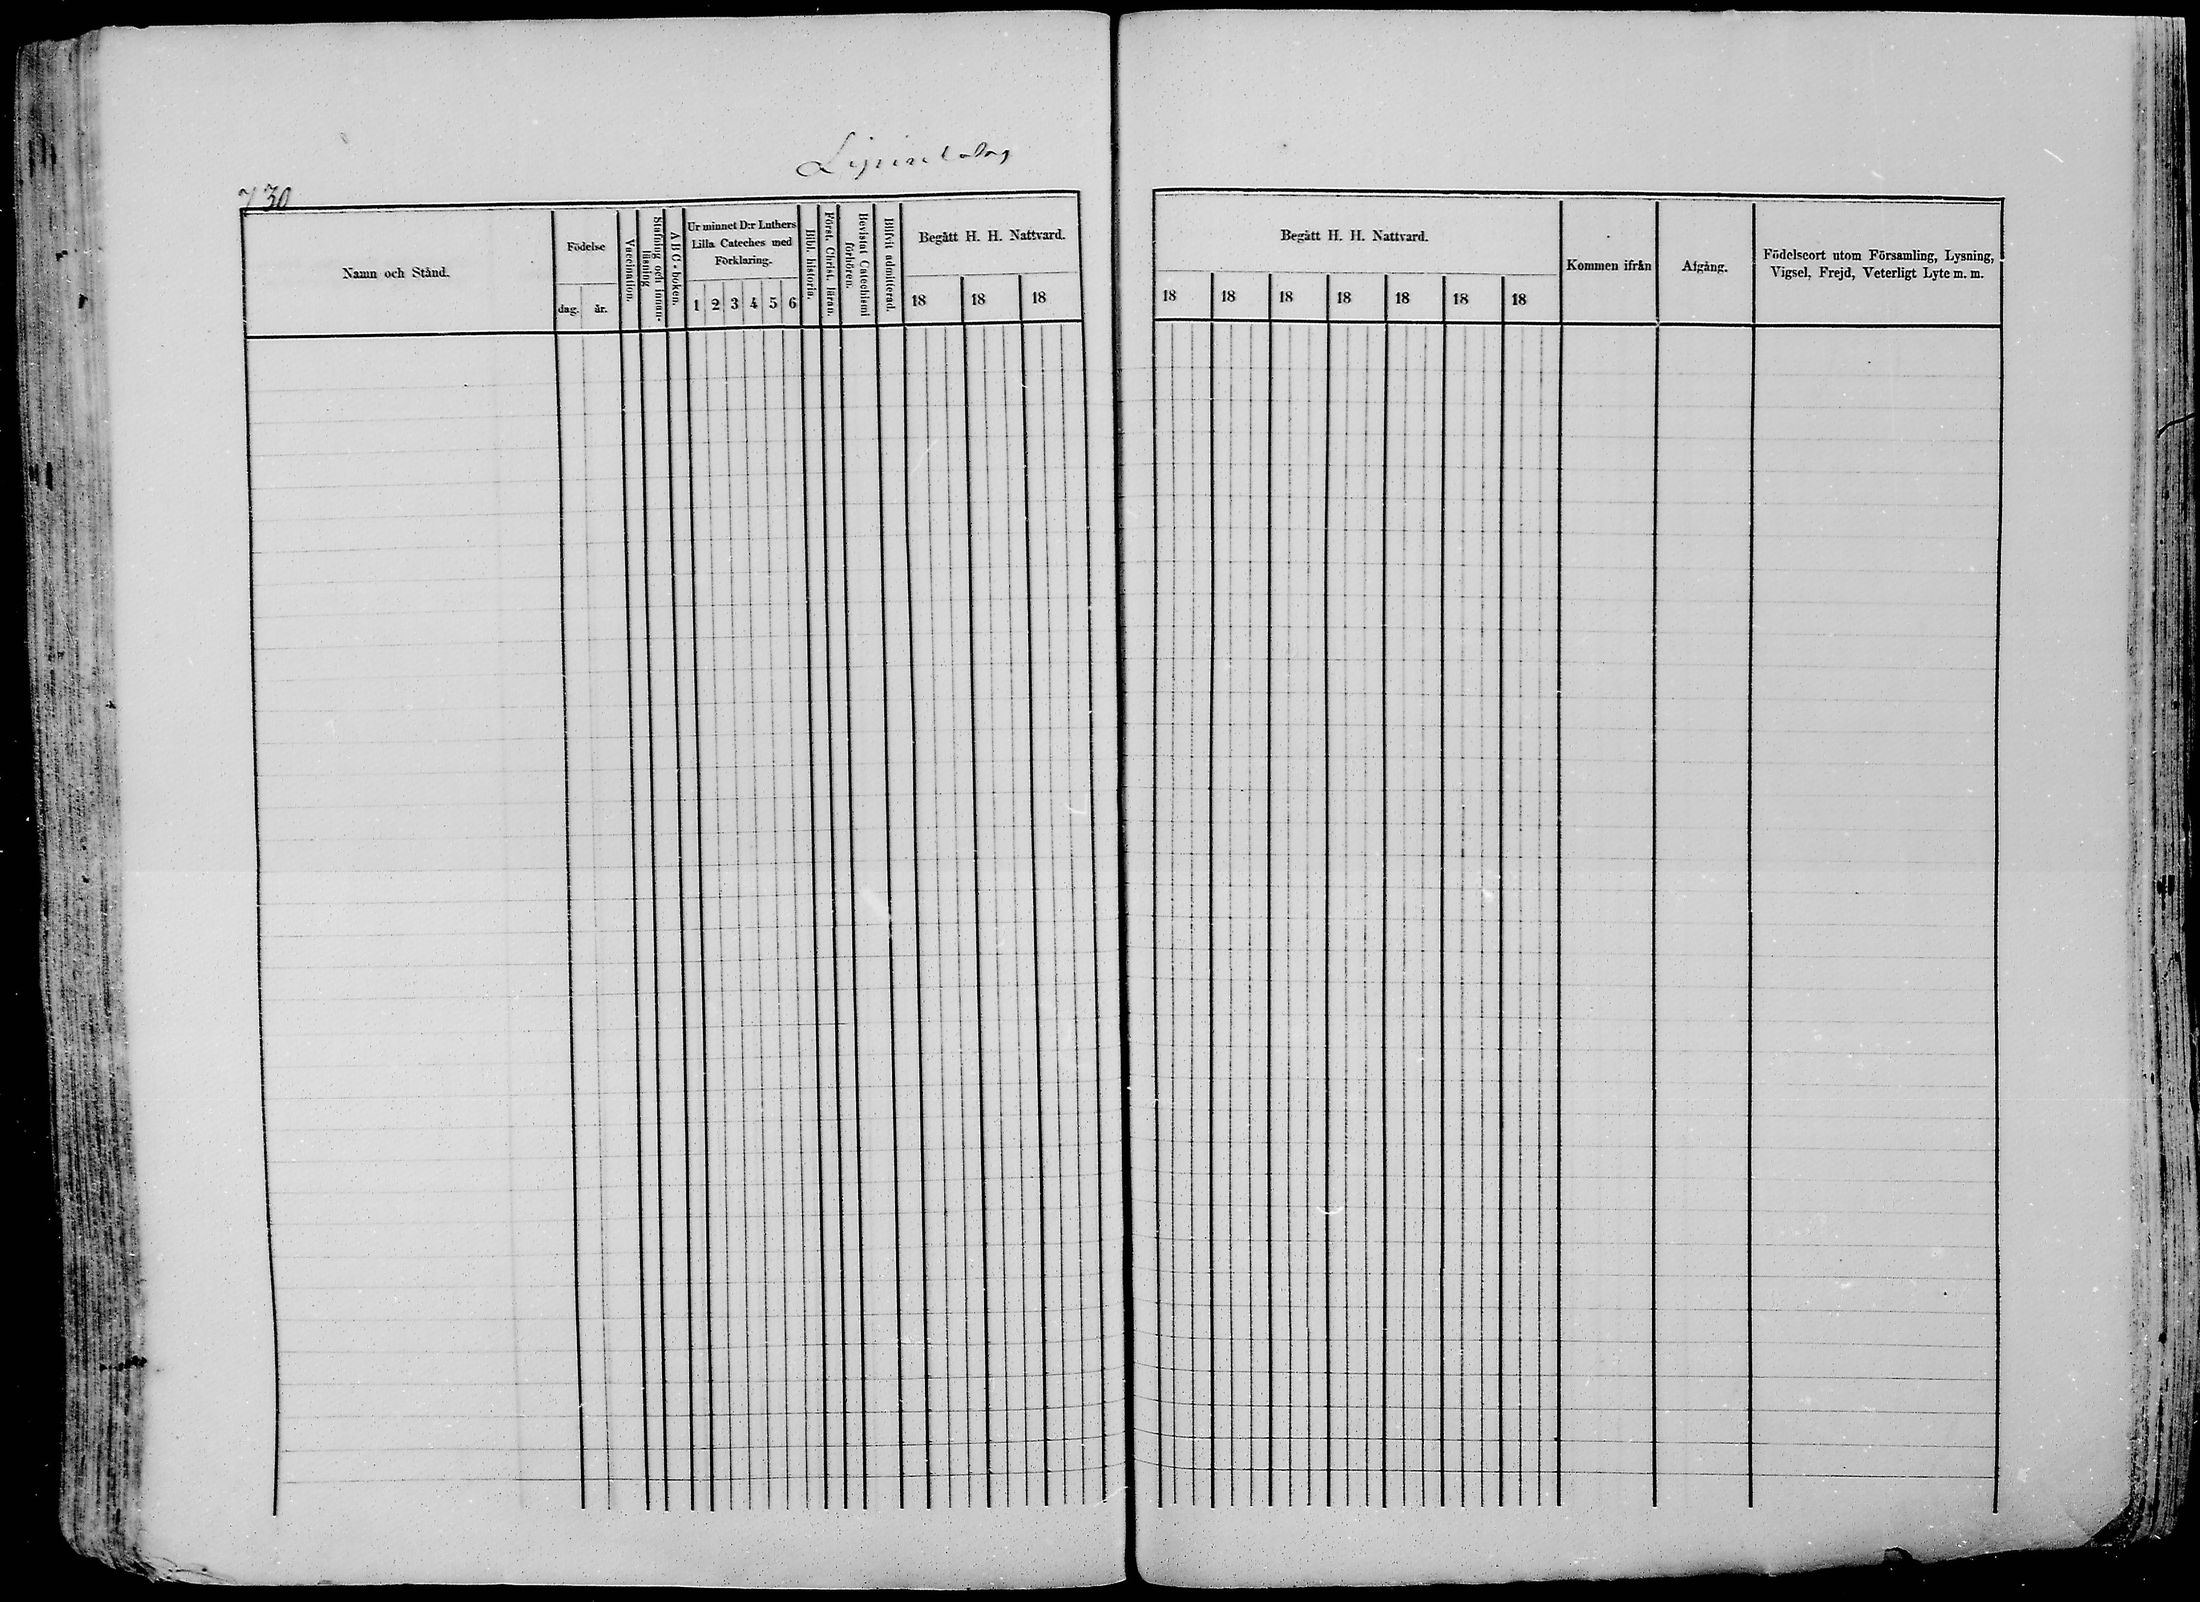 730
Namn och Stånd.
Födelse
dag.
år.
Vaccination.
Stafning och innan-
läsning
A B C-boken.
Ur minnet D:r Luthers
Lilla Cateches med
Förklaring.
1 2 3 4 5 6
Bibl. historia.
Först. Christ. läran.
Bevistat Catechismi
förhören.
Blifvit admitterad.
Begått H. H. Nattvard.
18 18 18
Begått H. H. Nattvard.
18 18 18 18 18 18 18
Kommen ifrån
Afgång.
Födelseort utom Församling, Lysning,
Vigsel, Frejd, Veterligt Lyte m. m.